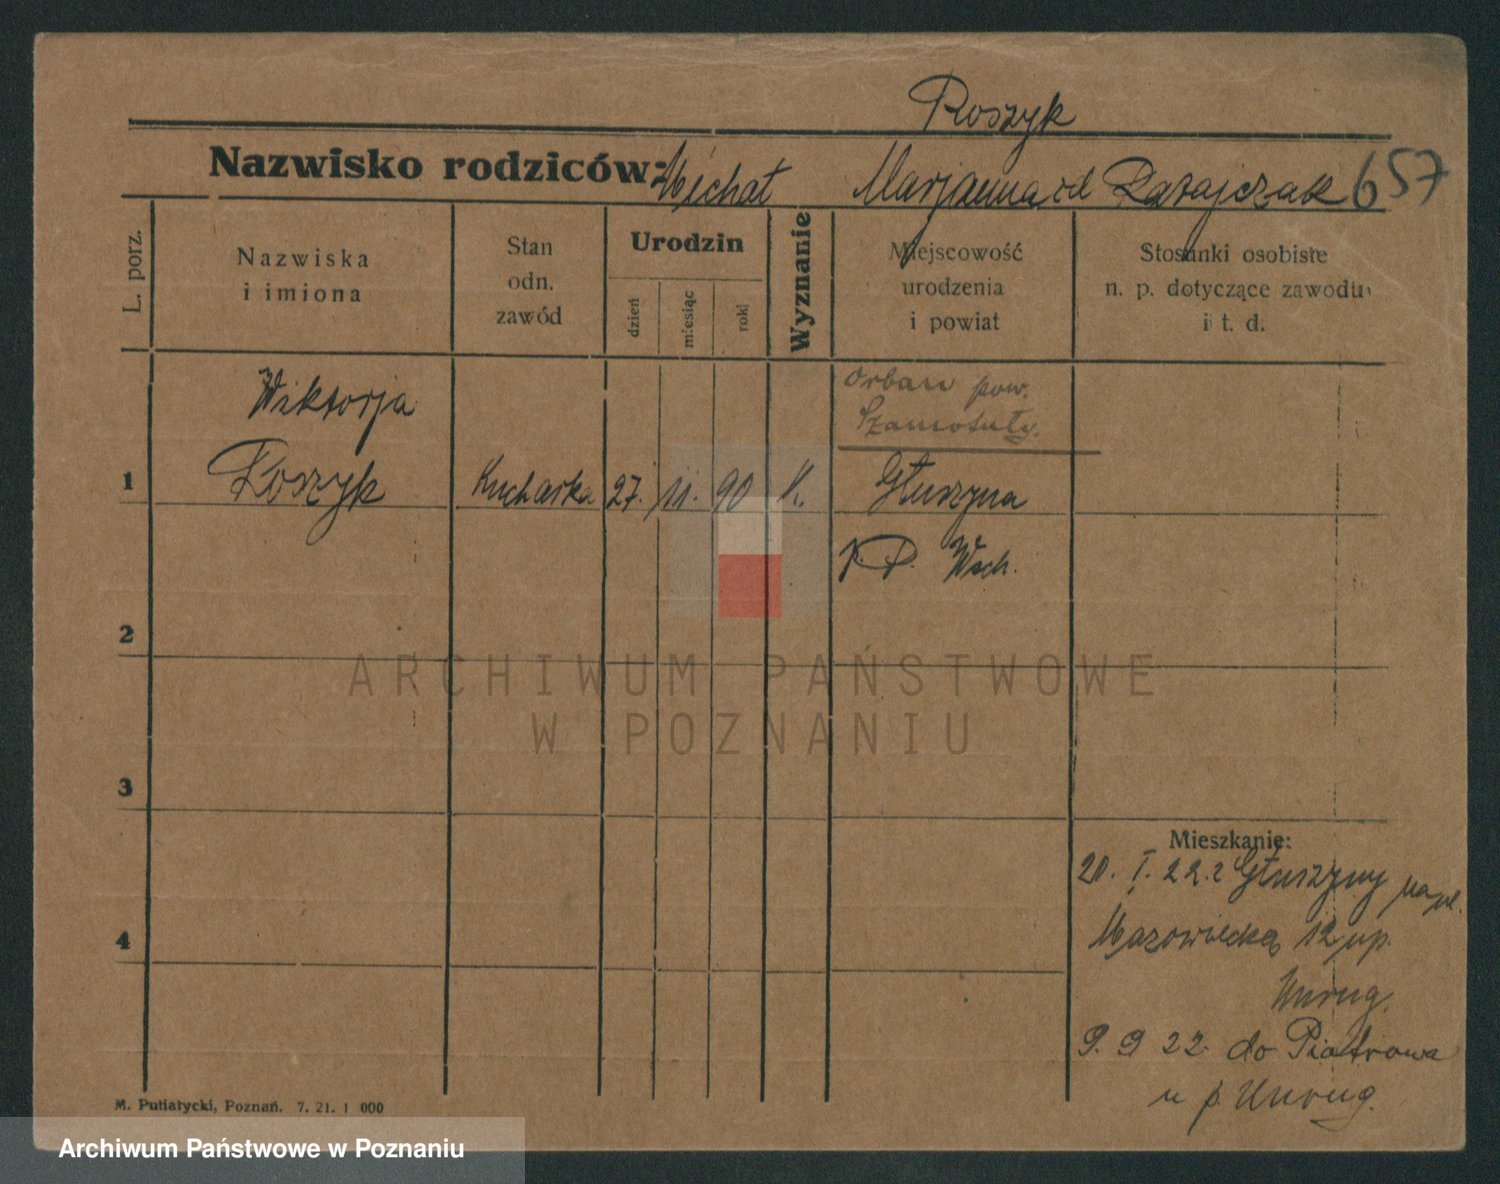 Roszyk
Nazwisko rodziców: Michał Marjanna od Ratajczak 657
L. porz.
Nazwiska
i imiona
Stan
odn.
zawód
Urodzin
dzień
miesiąc
rok
Wyznanie
Miejscowość
urodzenia
i powiat
Stosunki osobiste
n. p. dotyczące zawodu
i t. d.
Wiktorja
1 Roszyk Kucharka 27. 11. 90 K.
pow.
Szamotuły.
Głuszyna
P. Wsch.
2
3
4
Mieszkanie:
20. I. 22. z Głuszyny na ul.
Mazowiecką 12 u p.
Unrug.
9. 9 22. do Piotrowa
u p. Unrug.
M. Putiatycki, Poznań. 7. 21. 1 000
ARCHIWUM PAŃSTWOWE
W POZNANIU
Archiwum Państwowe w Poznaniu